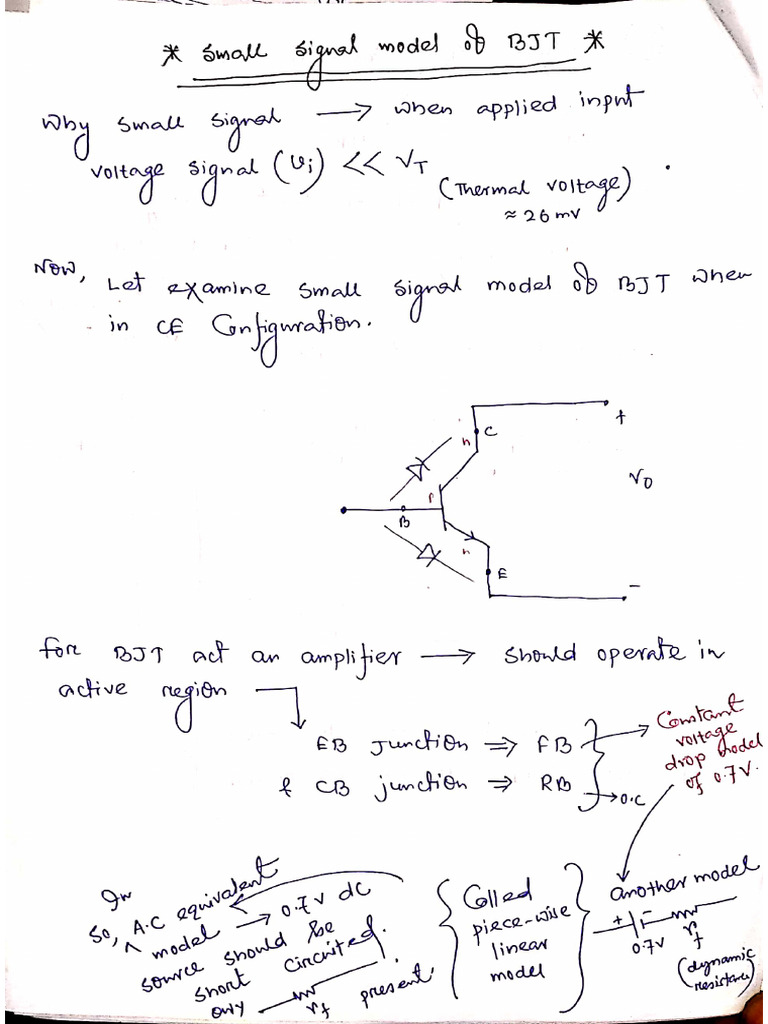 * Small signal model of BJT *
Why small signal → when applied input
voltage signal (Vi) << VT
(Thermal voltage)
≈ 26 mV
Now, Let examine small signal model of BJT when
in CE Configuration.
+
C
n
P
B
VO
n
E
-
for BJT act an amplifier → should operate in
active region
EB Junction ⇒ FB
& CB junction ⇒ RB
→ O.C
Constant
voltage
drop model
of 0.7V.
another model
+ -
0.7V rf
(dynamic
resistance)
Called
piece-wise
linear
model
In
so, ^ A.C equivalent
model → 0.7V dc
source should be
short circuited.
only rf present.